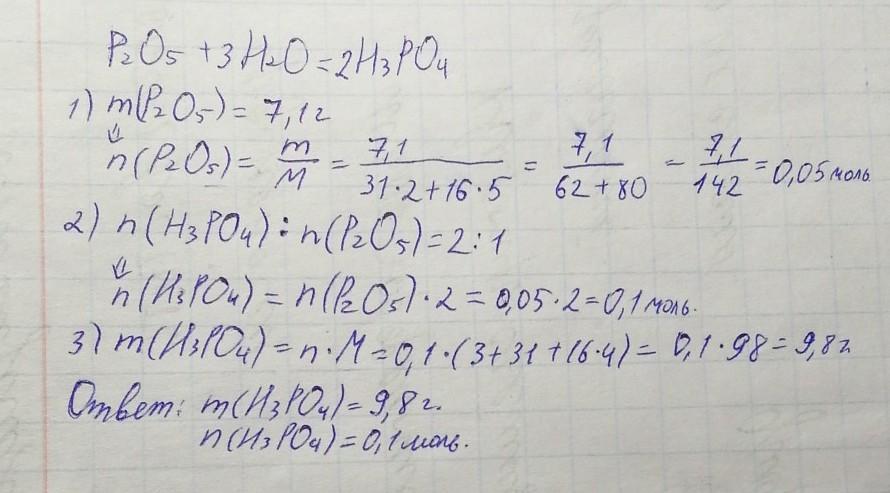 P₂O₅ + 3H₂O = 2H₃PO₄
1) m(P₂O₅) = 7,1г
⇓
n(P₂O₅) = m/M = 7,1/(31·2+16·5) = 7,1/(62+80) = 7,1/142 = 0,05 моль
2) n(H₃PO₄) : n(P₂O₅) = 2:1
⇓
n(H₃PO₄) = n(P₂O₅)·2 = 0,05·2 = 0,1 моль.
3) m(H₃PO₄) = n·M = 0,1·(3+31+16·4) = 0,1·98 = 9,8г
Ответ: m(H₃PO₄) = 9,8г.
n(H₃PO₄) = 0,1 моль.